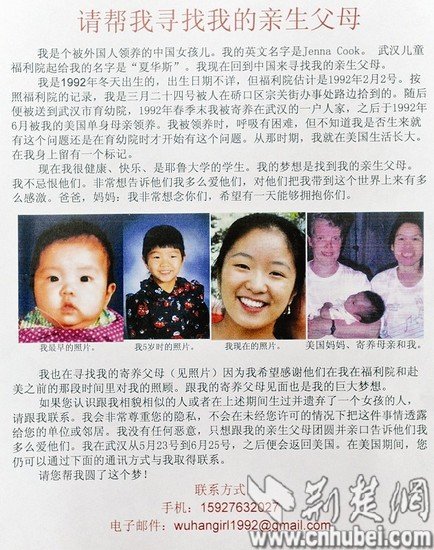 请帮我寻找我的亲生父母
我是个被外国人领养的中国女孩儿。我的英文名字是Jenna Cook。 武汉儿童
福利院起给我的名字是“夏华斯”。我现在回到中国来寻找我的亲生父母。
我是1992年冬天出生的，出生日期不详，但福利院估计是1992年2月2号。按
照福利院的记录，我是三月二十四号被人在硚口区宗关街办事处路边拾到的。随后
便被送到武汉市育幼院，1992年春季末我被寄养在武汉的一户人家，之后于1992年
6月被我的美国单身母亲领养。我被领养时，呼吸有困难，但不知道我是否生来就
有这个问题还是在育幼院时才开始有这个问题。从那时期，我就在美国生活长大。
在我身上留有一个标记。
现在我很健康、快乐、是耶鲁大学的学生。我的梦想是找到我的亲生父母。
我不忌恨他们。非常想告诉他们我多么爱他们，对他们把我带到这个世界上来有多
么感激。爸爸，妈妈：我非常想念你们，希望有一天能够拥抱你们。
我最早的照片。
我5岁时的照片。
我现在的照片。
美国妈妈、寄养母亲和我。
我也在寻找我的寄养父母（见照片）因为我希望感谢他们在我在福利院和赴
美之前的那段时间里对我的照顾。跟我的寄养父母见面也是我的巨大梦想。
如果您认识跟我相貌相似的人或者在上述期间生过并遗弃了一个女孩的人，
请跟我联系。我会非常尊重您的隐私，不会在未经您许可的情况下把这件事情透露
给您的单位或邻居。我没有任何恶意，只想跟我的亲生父母团圆并亲口告诉他们我
多么爱他们。我在武汉从5月23号到6月25号，之后便会返回美国。在美国期间，您
仍可以通过下面的通讯方式与我取得联系。
请您帮我圆了这个梦！
联系方式
手机：15927632027
电子邮件：wuhangirl1992@gmail.com
荆楚網
www.cnhubei.com